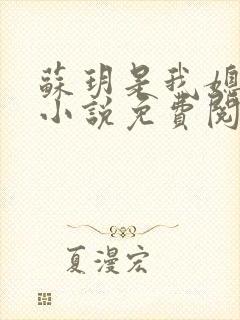 蘇玥是我媽
小說免費閱
夏漫宏